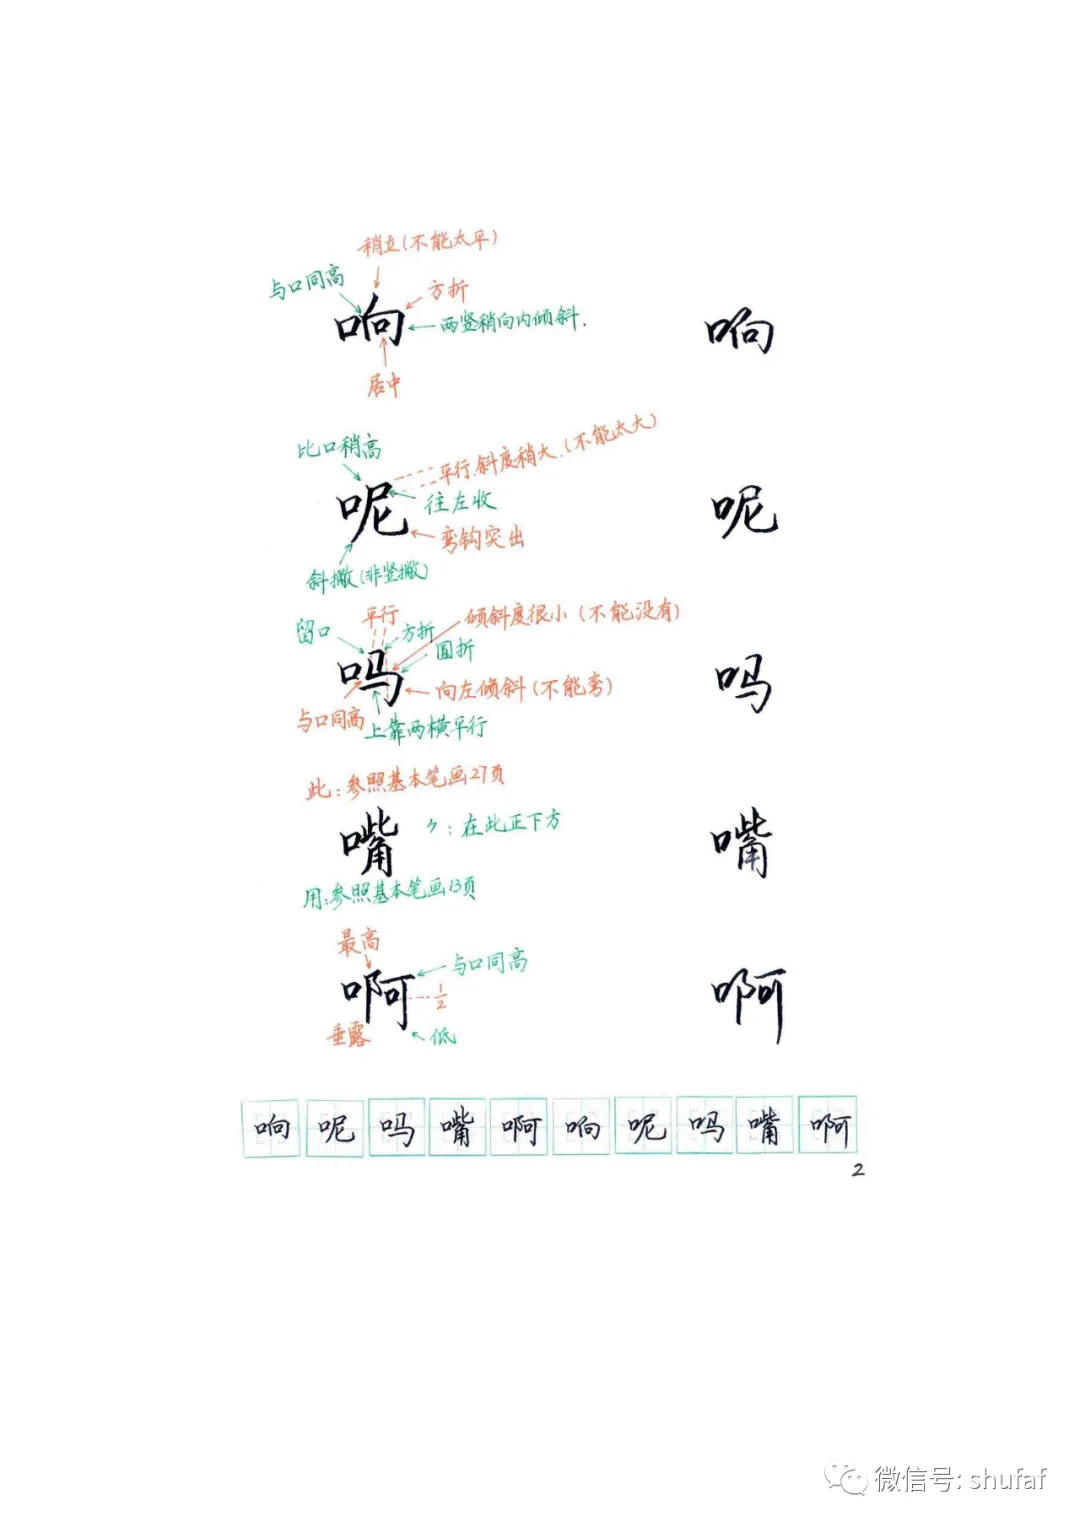 稍立(不能太平)
与口同高
方折
响
两竖稍向内倾斜.
响
居中
比口稍高
平行.斜度稍大.(不能太大)
呢
往左收
呢
弯钩突出
斜撇(非竖撇)
平行
倾斜度很小(不能没有)
留口
方折
圆折
吗
吗
向左倾斜(不能弯)
与口同高
上靠两横平行
此:参照基本笔画27页
嘴
⺈:在此正下方
嘴
用:参照基本笔画13页
最高
与口同高
啊
1/2
啊
垂露
低
响 呢 吗 嘴 啊 响 呢 吗 嘴 啊
2
微信号: shufaf